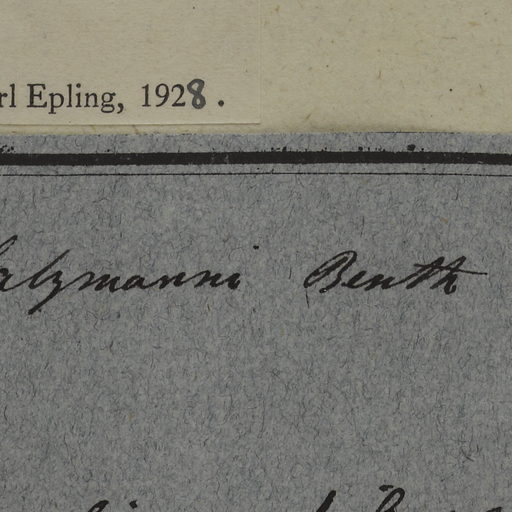 rl Epling, 1928.
alzmanni Benth